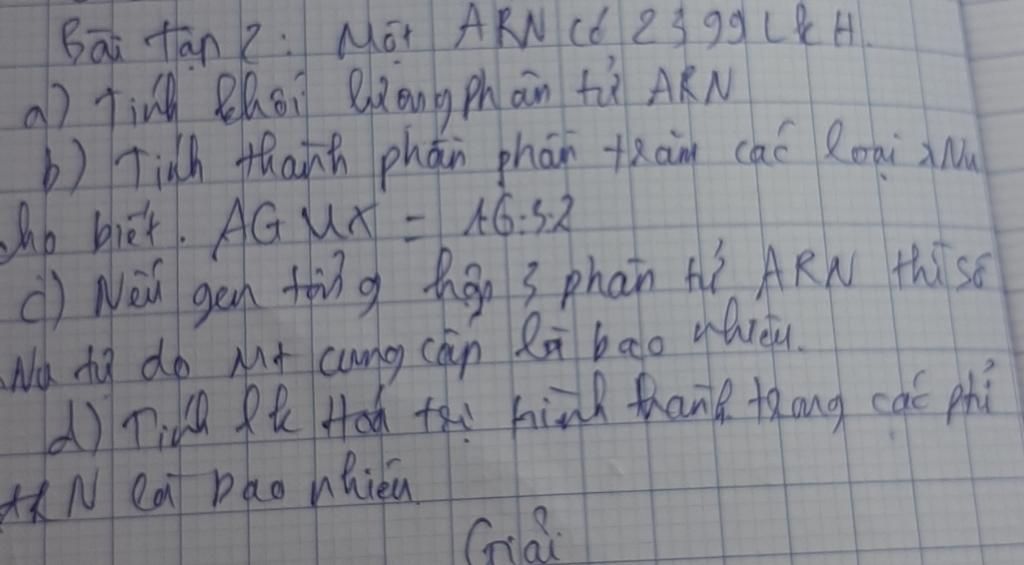 Bài tập 2: Một ARN có 2399 LkH.
a) Tính khối lượng phân tử ARN
b) Tính thành phần phần trăm các loại rNu
cho biết. AGUX =
c) Nếu gen tổng hợp 3 phân tử ARN thì số
Nu tự do Mt cung cấp là bao nhiêu.
d) Tính lk Hoá trị hình thành trong các phi
ARN là bao nhiêu
Giải